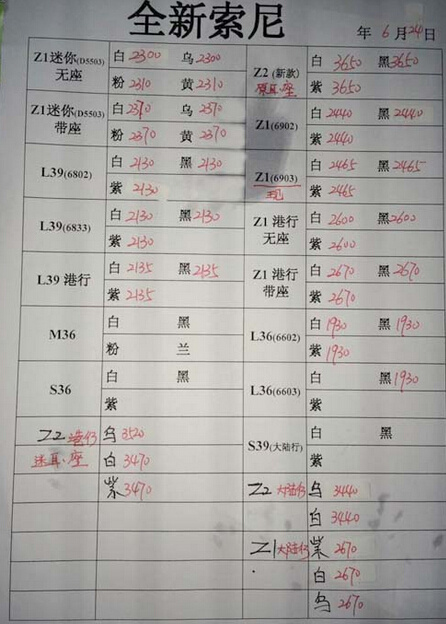 全新索尼
年 6 月 24 日
Z1迷你(D5503) 无座 白 2300 乌 2300
粉 2310 黄 2310
Z1迷你(D5503) 带座 白 2370 乌 2370
粉 2370 黄 2370
L39(6802) 白 2130 黑 2130
紫 2130
L39(6833) 白 2130 黑 2130
紫 2130
L39 港行 白 2135 黑 2135
紫 2135
M36 白 黑
粉 兰
S36 白 黑
紫
Z2 港行 乌 3520
送耳.座 白 3470
紫 3470
Z2 (新款) 白 3650 黑 3650
耳座 紫 3650
Z1(6902) 白 2440 黑 2440
紫 2440
Z1(6903) 白 2465 黑 2465
紫 2465
Z1 港行 无座 白 2600 黑 2600
紫 2600
Z1 港行 带座 白 2670 黑 2670
紫 2670
L36(6602) 白 1930 黑 1930
紫 1930
L36(6603) 白 黑 1930
紫
S39(大陆行) 白 黑
紫
Z2 大陆行 乌 3440
白 3440
Z1 大陆行 紫 2670
白 2670
乌 2670